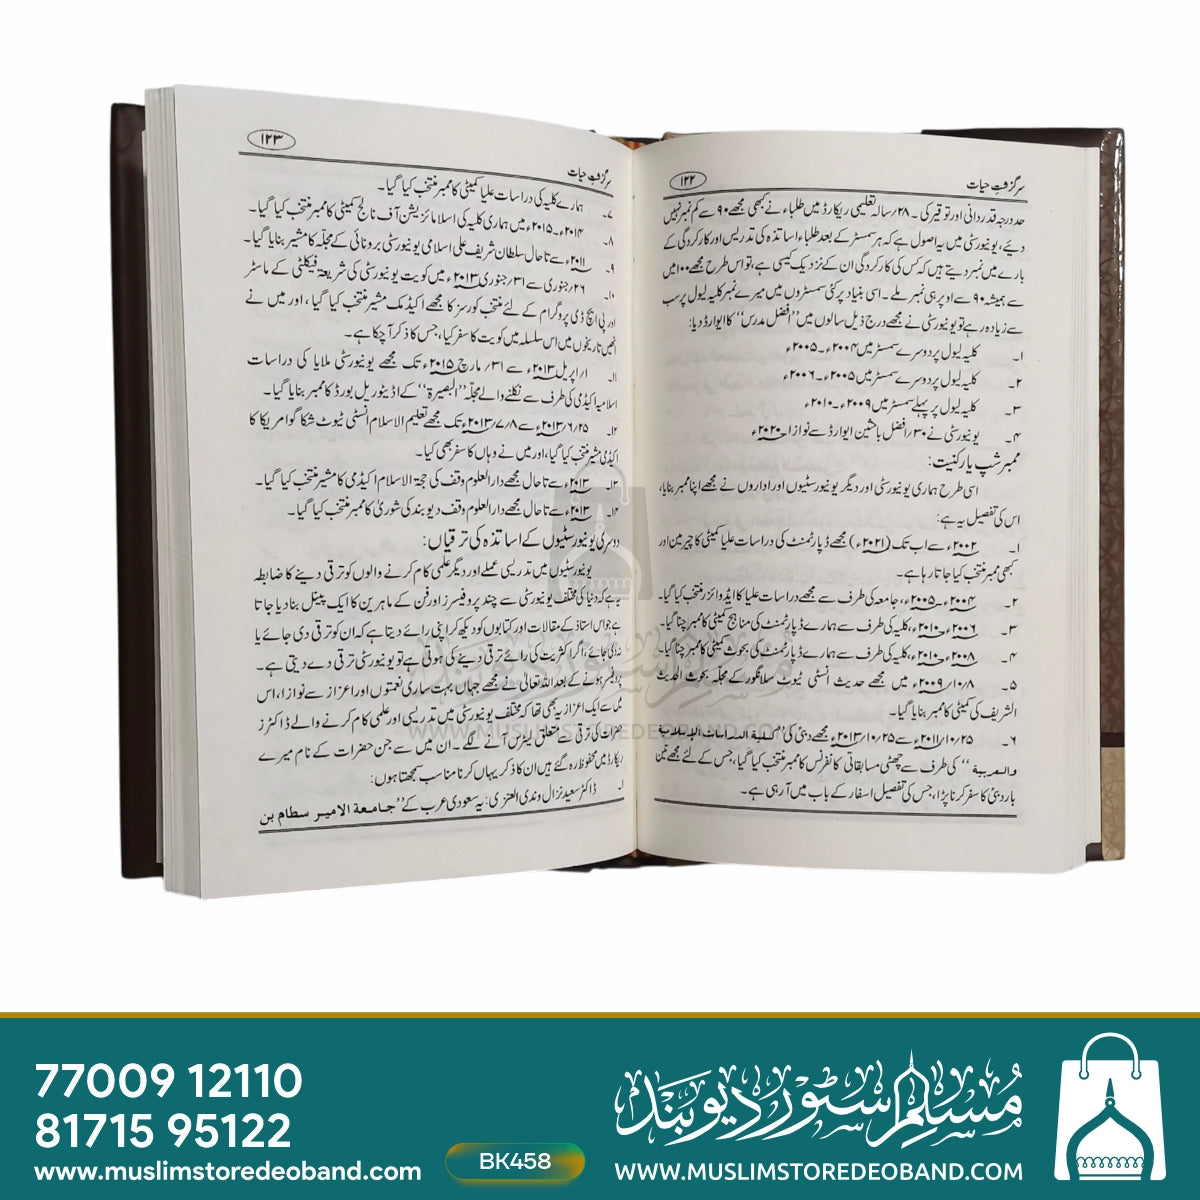 ۱۲۲
سرگزشتِ حیات
حد درجہ قدردانی اور توقیر کی۔ ۲۸/سالہ تعلیمی ریکارڈ میں طلباء نے کبھی مجھے ۹۰ سے کم نمبر نہیں
دیئے، یونیورسٹی میں یہ اصول ہے کہ ہر سمسٹر کے بعد طلباء اساتذہ کی تدریس اور کارکردگی کے
بارے میں نمبر دیتے ہیں کہ کس کی کارکردگی ان کے نزدیک کیسی ہے، تو اس طرح مجھے ۱۰۰ میں
سے ہمیشہ ۹۰ سے اوپر ہی نمبر ملے۔ اسی بنیاد پر کئی سمسٹروں میں میرے نمبر کلیہ لیول پر سب
سے زیادہ رہے تو یونیورسٹی نے مجھے درج ذیل سالوں میں "افضل مدرس" کا ایوارڈ دیا:
۱۔ کلیہ لیول پر دوسرے سمسٹر میں ۲۰۰۴ء۔۲۰۰۵ء
۲۔ کلیہ لیول پر دوسرے سمسٹر میں ۲۰۰۵ء۔۲۰۰۶ء
۳۔ کلیہ لیول پر پہلے سمسٹر میں ۲۰۰۹ء۔۲۰۱۰ء
۴۔ یونیورسٹی نے ۳۰/افضل باحثین ایوارڈ سے نوازا ۲۰۲۰ء
ممبر شپ یا رکنیت:
اسی طرح ہماری یونیورسٹی اور دیگر یونیورسٹیوں اور اداروں نے مجھے اپنا ممبر بنایا،
اس کی تفصیل یہ ہے:
۱۔ ۲۰۰۲ء سے اب تک (۲۰۲۱ء) مجھے ڈپارٹمنٹ کی دراسات علیا کمیٹی کا چیرمین اور
کبھی ممبر منتخب کیا جاتا رہا ہے۔
۲۔ ۲۰۰۴ء۔۲۰۰۵ء، جامعہ کی طرف سے مجھے دراسات علیا کا ایڈوائزر منتخب کیا گیا۔
۳۔ ۲۰۰۶ء۔۲۰۱۰ء، کلیہ کی طرف سے ہمارے ڈپارٹمنٹ کی مناہج کمیٹی کا ممبر چنا گیا۔
۴۔ ۲۰۰۸ء۔۲۰۱۰ء، کلیہ کی طرف سے ہمارے ڈپارٹمنٹ کی بحوث کمیٹی کا ممبر چنا گیا۔
۵۔ ۲۰۰۹/۱۰/۸ء میں مجھے حدیث انسٹی ٹیوٹ سلانگور کے مجلّہ بحوث الحدیث
الشریف کی کمیٹی کا ممبر بنایا گیا۔
۶۔ ۲۰۱۱/۱۰/۲۵ء سے ۲۰۱۳/۱۰/۲۵ء مجھے دبئی کی "کلیۃ الدراسات الإسلامیۃ
والعربیۃ" کی طرف سے چھٹی مسابقاتی کانفرنس کا ممبر منتخب کیا گیا، جس کے لئے مجھے تین
بار دبئی کا سفر کرنا پڑا، جس کی تفصیل اسفار کے باب میں آرہی ہے۔
۱۲۳
سرگزشتِ حیات
۷۔ ہمارے کلیہ کی دراسات علیا کمیٹی کا ممبر منتخب کیا گیا۔
۸۔ ۲۰۱۴ء۔۲۰۱۵ء میں ہماری کلیہ کی اسلامائزیشن آف نالج کمیٹی کا ممبر منتخب کیا گیا۔
۹۔ ۲۰۱۱ء سے تا حال سلطان شریف علی اسلامی یونیورسٹی برونائی کے مجلّہ کا مشیر بنایا گیا۔
۱۰۔ ۲۶/جنوری سے ۳۱/جنوری ۲۰۱۳ء میں کویت یونیورسٹی کی شریعۃ فیکلٹی کے ماسٹر
اور پی ایچ ڈی پروگرام کے لئے منتخب کورسز کا مجھے اکیڈمک مشیر منتخب کیا گیا، اور میں نے
انھیں تاریخوں میں اس سلسلہ میں کویت کا سفر کیا، جس کا ذکر آچکا ہے۔
۱۱۔ ۱/اپریل ۲۰۱۳ء سے ۳۱/مارچ ۲۰۱۵ء تک مجھے یونیورسٹی ملایا کی دراسات
اسلامیہ اکیڈمی کی طرف سے نکلنے والے مجلّہ "البصیرۃ" کے اڈیٹوریل بورڈ کا ممبر بنایا گیا۔
۱۲۔ ۲۰۱۳/۶/۲۵ء سے ۲۰۱۳/۷/۸ء تک مجھے تعلیم الاسلام انسٹی ٹیوٹ شکاگو امریکا کا
اکیڈمی مشیر منتخب کیا گیا، اور میں نے وہاں کا سفر بھی کیا۔
۱۳۔ ۲۰۱۳ء سے تا حال مجھے دارالعلوم وقف کی حجۃ الاسلام اکیڈمی کا مشیر منتخب کیا گیا۔
۱۴۔ ۲۰۱۳ء سے تا حال مجھے دارالعلوم وقف دیوبند کی شوریٰ کا ممبر منتخب کیا گیا۔
دوسری یونیورسٹیوں کے اساتذہ کی ترقیاں:
یونیورسٹیوں میں تدریسی عملے اور دیگر علمی کام کرنے والوں کو ترقی دینے کا ضابطہ
یہ ہے کہ دنیا کی مختلف یونیورسٹی سے چند پروفیسرز اور فن کے ماہرین کا ایک پینل بنا دیا جاتا
ہے جو اس استاذ کے مقالات اور کتابوں کو دیکھ کر اپنی رائے دیتا ہے کہ ان کو ترقی دی جائے یا
نہ دی جائے، اگر اکثریت کی رائے ترقی دینے کی ہوتی ہے تو یونیورسٹی ترقی دے دیتی ہے۔
پروفیسر ہونے کے بعد اللہ تعالیٰ نے مجھے جہاں بہت ساری نعمتوں اور اعزاز سے نوازا، اس
میں سے ایک اعزاز یہ بھی تھا کہ مختلف یونیورسٹی میں تدریسی اور علمی کام کرنے والے ڈاکٹرز
حضرات کی ترقی سے متعلق لیٹرس آنے لگے۔ ان میں سے جن حضرات کے نام میرے
ریکارڈ میں محفوظ رہ گئے ہیں ان کا ذکر یہاں کرنا مناسب سمجھتا ہوں:
۱۔ ڈاکٹر سعید نزال وندی العنزی: یہ سعودی عرب کے "جامعۃ الامیر سطام بن
مسلم سٹور دیوبند
WWW.MUSLIMSTOREDEOBAND.COM
77009 12110
81715 95122
www.muslimstoredeoband.com
BK458
مسلم سٹور دیوبند
WWW.MUSLIMSTOREDEOBAND.COM